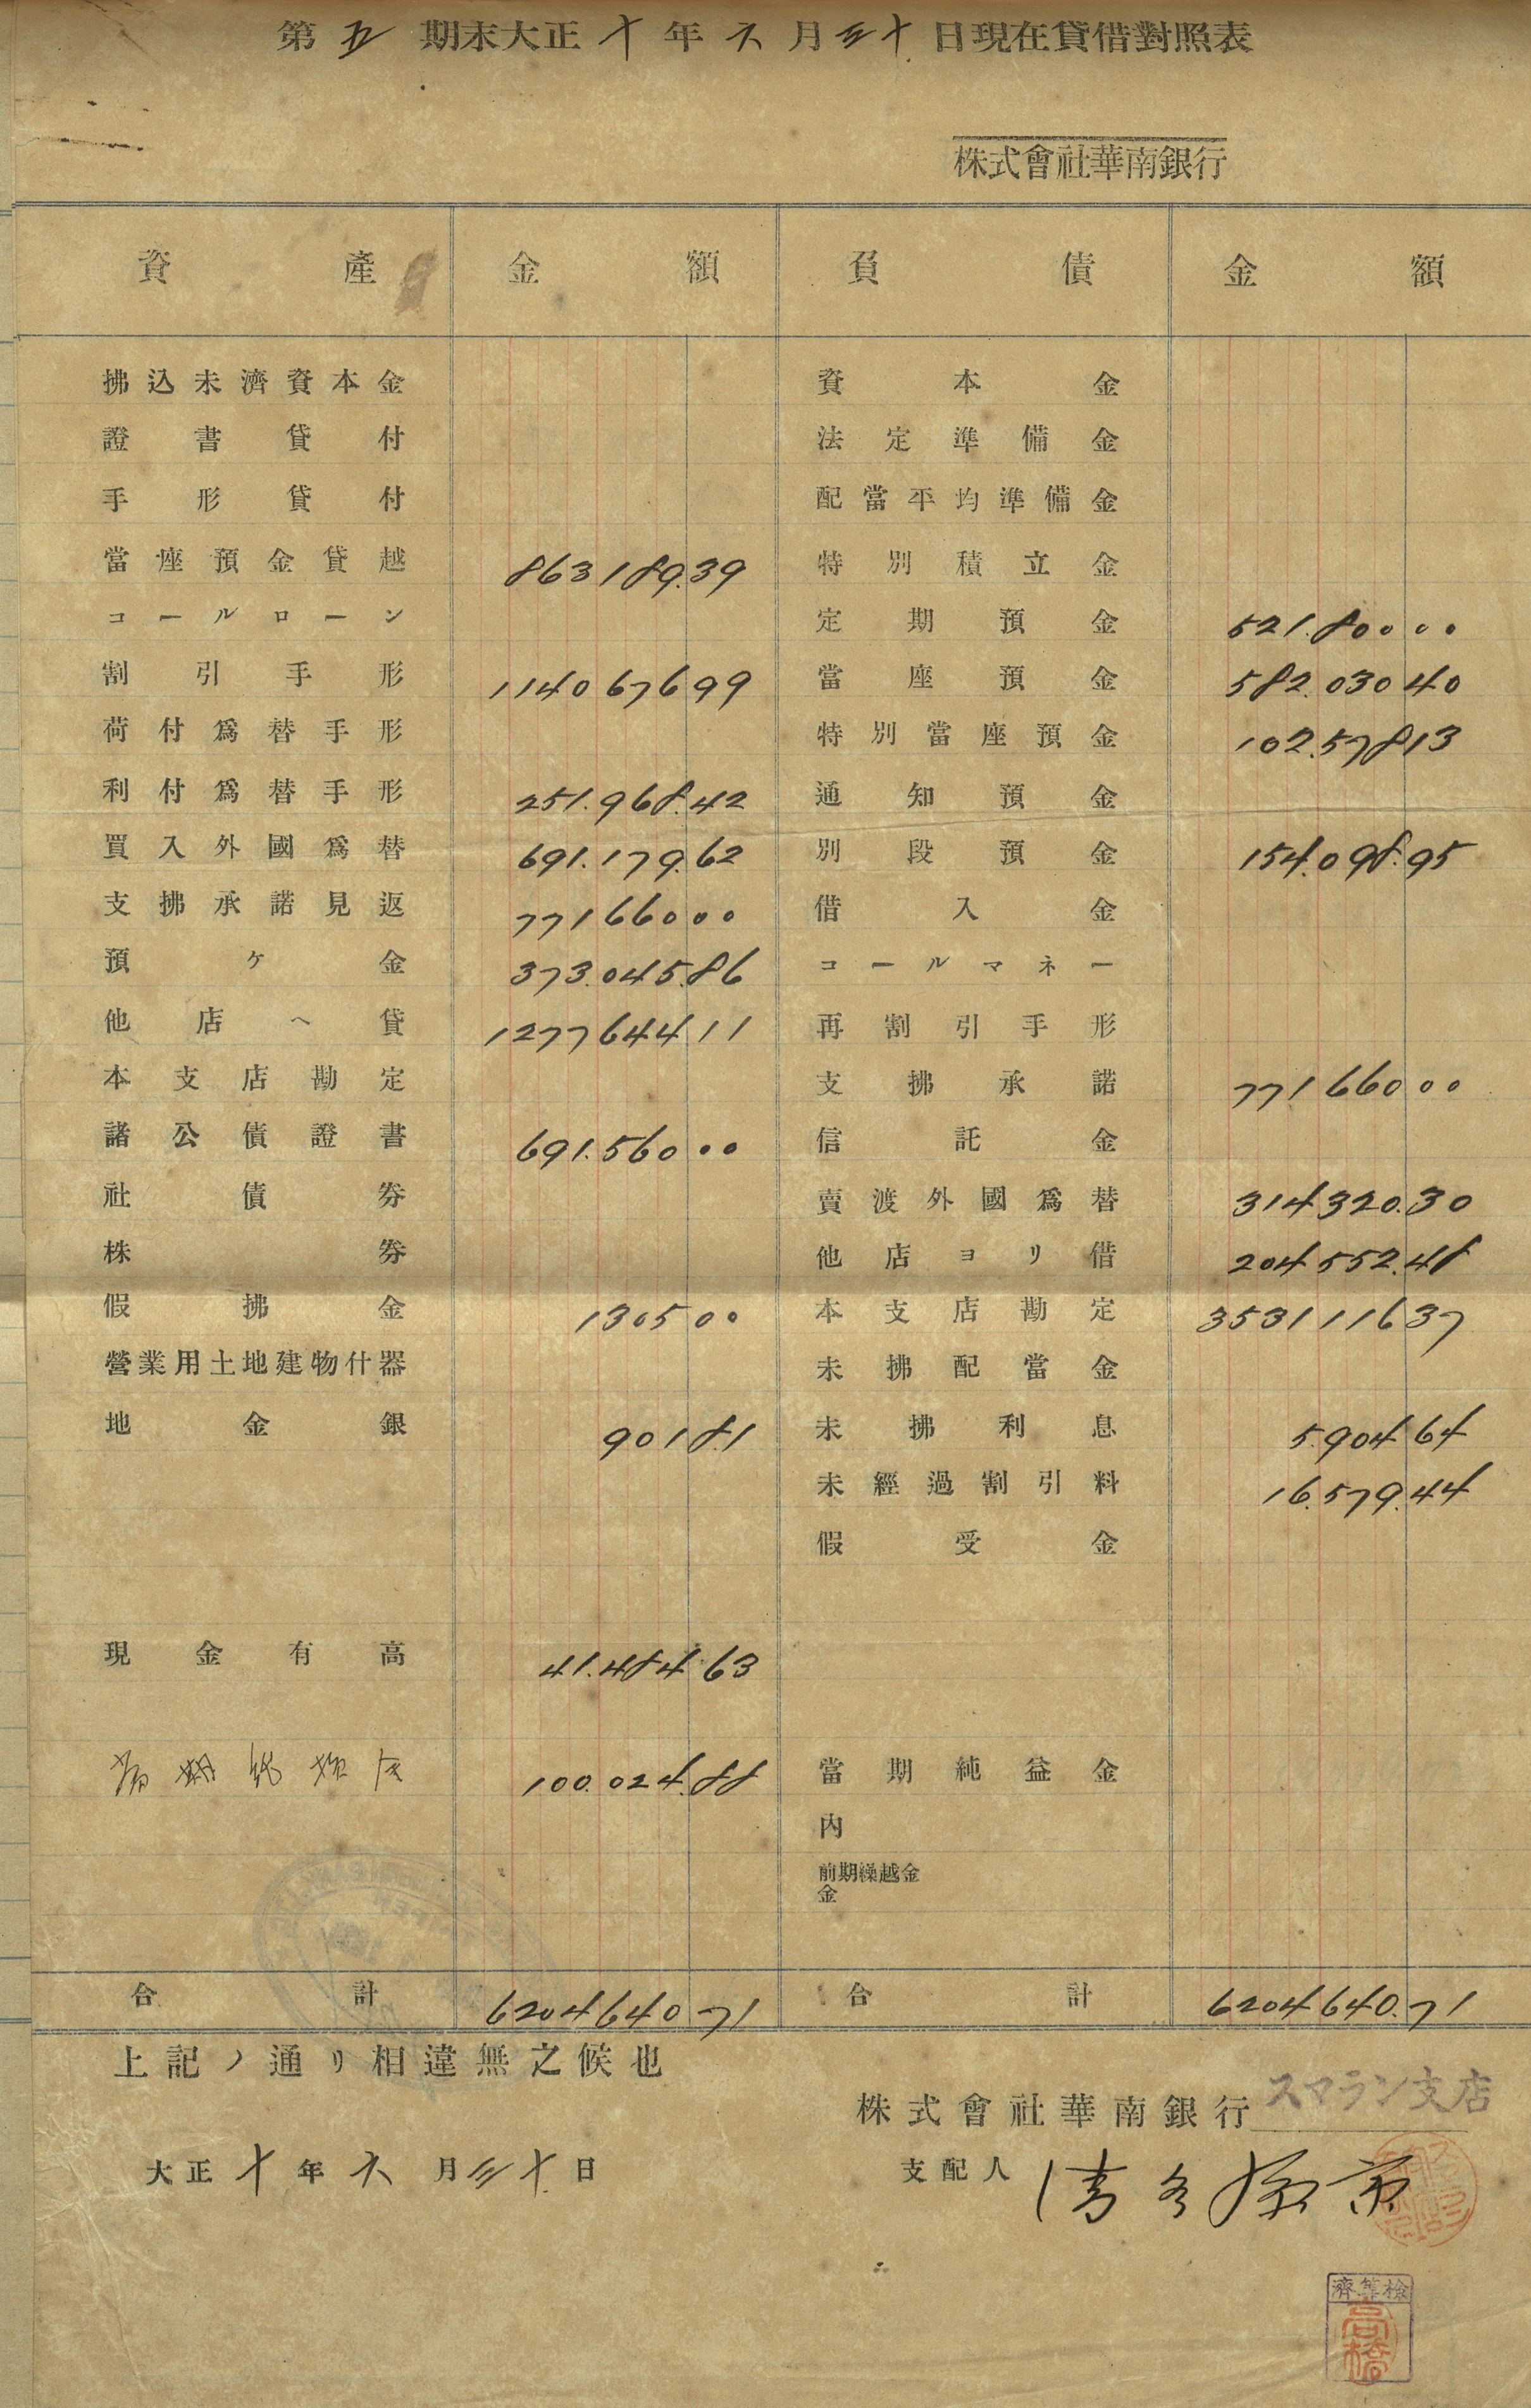 第五期末大正十年六月三十日現在貸借對照表
株式會社華南銀行
資產 金額 負債 金額
拂込未濟資本金 資本金
證書貸付 法定準備金
手形貸付 配當平均準備金
當座預金貸越 863189.39 特別積立金
コールローン 定期預金 521.80000
割引手形 114067699 當座預金 582.03040
荷付爲替手形 特別當座預金 102.57813
利付爲替手形 251.968.42 通知預金
買入外國爲替 691.179.62 別段預金 154.098.95
支拂承諾見返 77166000 借入金
預ケ金 373.045.86 コールマネー
他店ヘ貸 127764411 再割引手形
本支店勘定 支拂承諾 77166000
諸公債證書 691.56000 信託金
社債券 賣渡外國爲替 314320.30
株券 他店ヨリ借 204552.48
假拂金 130500 本支店勘定 353111637
營業用土地建物什器 未拂配當金
地金銀 9018.1 未拂利息 5.90464
未經過割引料 16.579.44
假受金
現金有高 41.48463
當期純損金 100.024.88 當期純益金
內
前期繰越金
金
合計 620464071 合計 6204640.71
上記ノ通リ相違無之候也
株式會社華南銀行スマラン支店
大正十年六月三十日 支配人
檢算濟
高橋